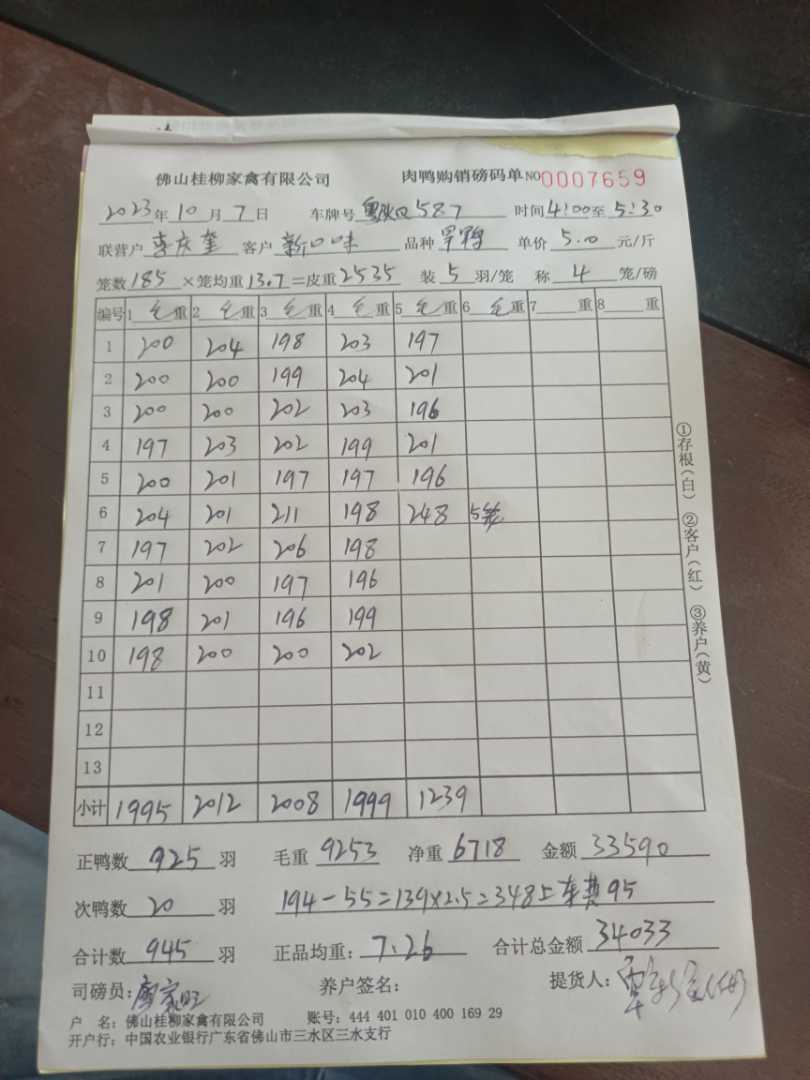 佛山桂柳家禽有限公司 肉鸭购销磅码单 NO0007659
2023年10月7日 车牌号 587 时间4:00至5:30
联营户 李庆奎 客户 新口味 品种 单价 5.0 元/斤
笼数185×笼均重13.7=皮重2535 装5羽/笼 称4笼/磅
编号 1毛重 2毛重 3毛重 4毛重 5毛重 6毛重 7重 8重
1 200 204 198 203 197
2 200 200 199 204 201
3 200 200 202 203 196
4 197 203 202 199 201
5 200 201 197 197 196
6 204 201 211 198 248 5笼
7 197 202 206 198
8 201 200 197 196
9 198 201 196 199
10 198 200 200 202
11
12
13
小计 1995 2012 2008 1999 1239
正鸭数 925 羽 毛重 9253 净重 6718 金额 33590
次鸭数 20 羽 194-55=139×2.5=348 车费95
合计数 945 羽 正品均重:7.26 合计总金额 34033
司磅员:廖家旺 养户签名: 提货人:
户 名:佛山桂柳家禽有限公司 账号:444 401 010 400 169 29
开户行:中国农业银行广东省佛山市三水区三水支行
①存根(白) ②客户(红) ③养户(黄)